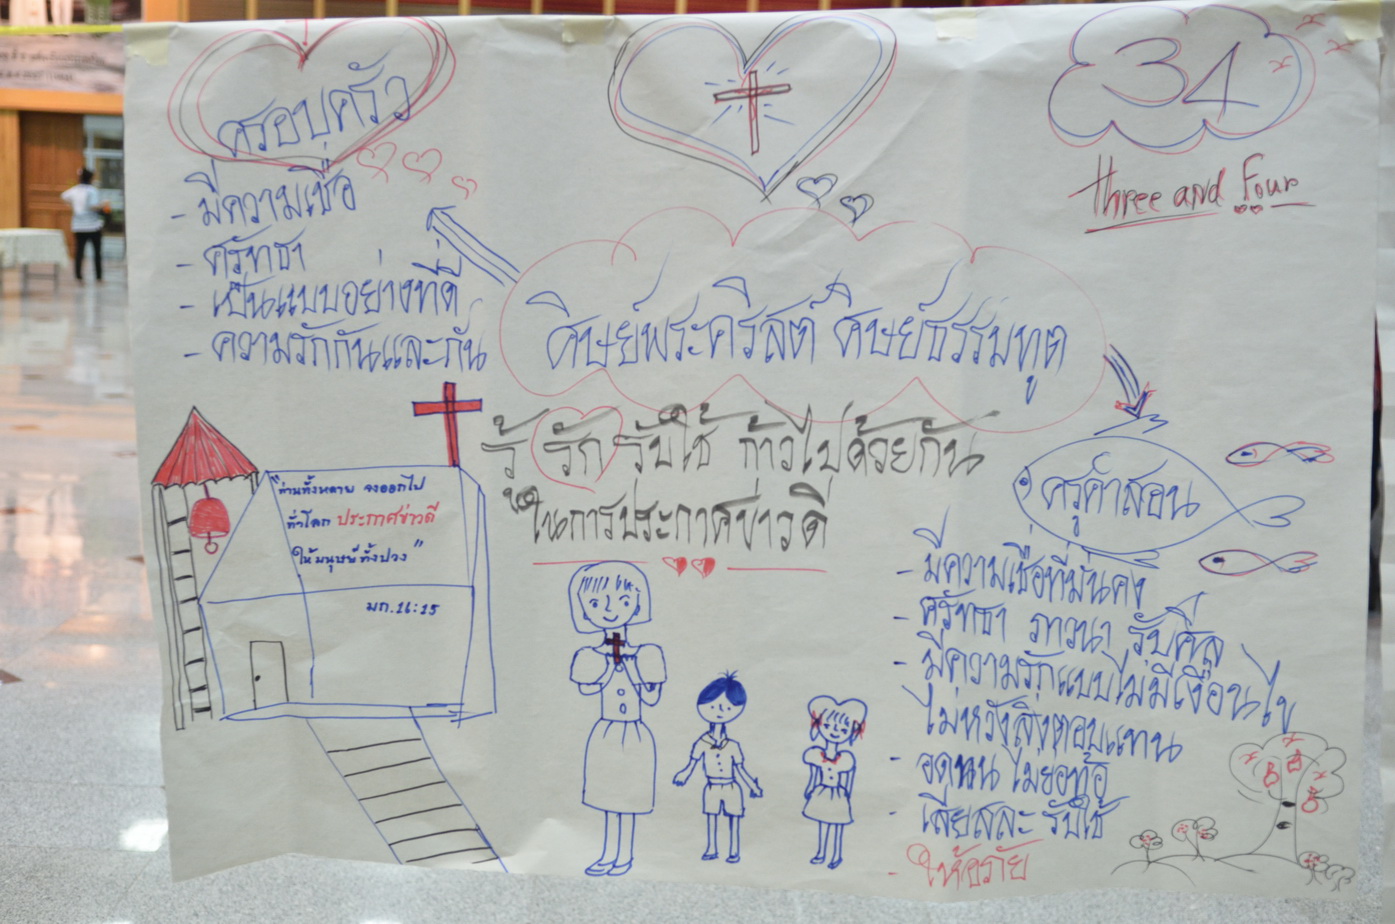 ครอบครัว
- มีความเชื่อ
- ศรัทธา
- เป็นแบบอย่างที่ดี
- ความรักกันและกัน
34
three and Four
ศิษย์พระคริสต์ ศิษย์ธรรมทูต
รู้ รัก รับใช้ ก้าวไปด้วยกัน
ในการประกาศข่าวดี
"ท่านทั้งหลาย จงออกไป
ทั่วโลก ประกาศข่าวดี
ให้มนุษย์ทั้งปวง"
มก.16:15
ครูคำสอน
- มีความเชื่อที่มั่นคง
- ศรัทธา ภาวนา รับศีล
- มีความรักแบบไม่มีเงื่อนไข
ไม่หวังสิ่งตอบแทน
- อดทน ไม่ย่อท้อ
- เสียสละ รับใช้
- ให้อภัย